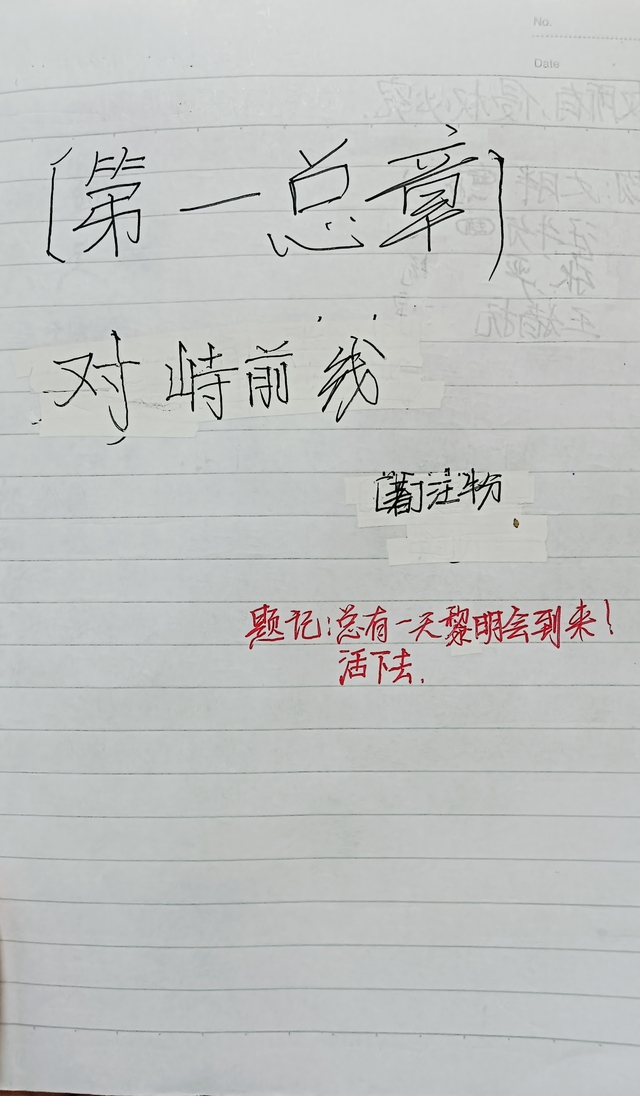 No.
Date
[第一总章]
对峙前线
[著]汪牛分
题记:总有一天黎明会到来!
活下去.